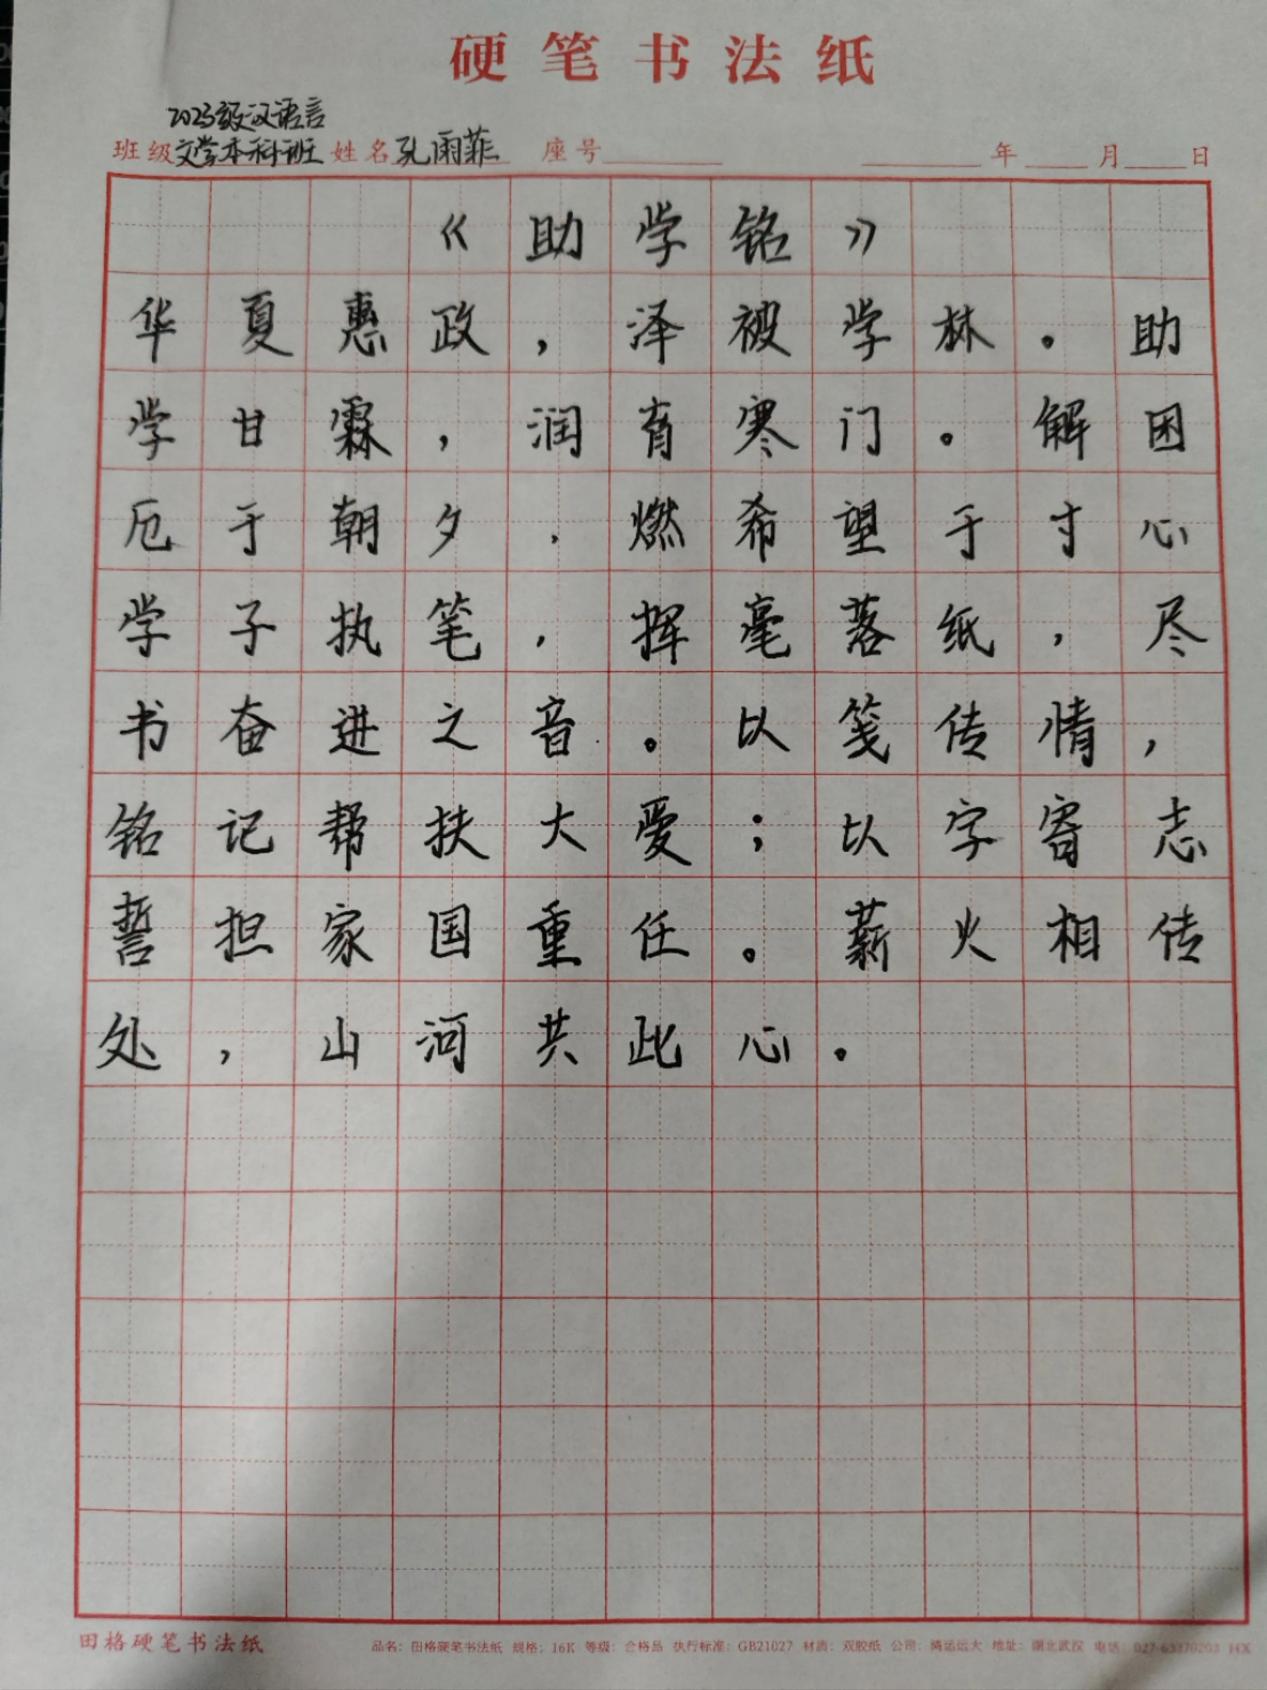 硬笔书法纸
2023级汉语言
班级文学本科班 姓名孔雨菲 座号 年 月 日
《助学铭》
华夏惠政，泽被学林。助
学甘霖，润育寒门。解困
厄于朝夕，燃希望于寸心
学子执笔，挥毫落纸，尽
书奋进之音。以笺传情，
铭记帮扶大爱；以字寄志
誓担家国重任。薪火相传
处，山河共此心。
田格硬笔书法纸 品名：田格硬笔书法纸 规格：16K 等级：合格品 执行标准：GB21027 材质：双胶纸 公司：鸿运远大 地址：湖北武汉 电话：